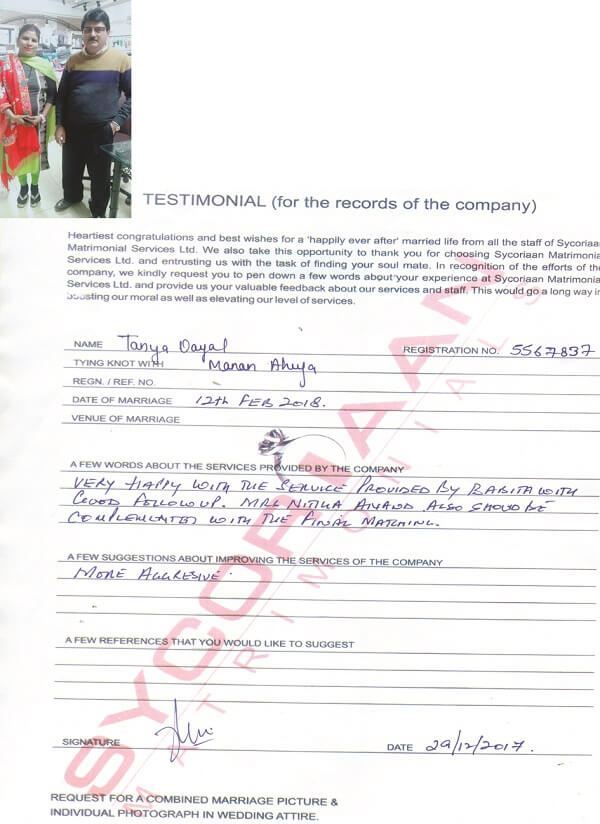 TESTIMONIAL (for the records of the company)
Heartiest congratulations and best wishes for a 'happily ever after' married life from all the staff of Sycoriaan
Matrimonial Services Ltd. We also take this opportunity to thank you for choosing Sycoriaan Matrimonia
Services Ltd. and entrusting us with the task of finding your soul mate. In recognition of the efforts of the
company, we kindly request you to pen down a few words about your experience at Sycoriaan Matrimonia
Services Ltd. and provide us your valuable feedback about our services and staff. This would go a long way in
boosting our moral as well as elevating our level of services.
NAME Tanya Dayal REGISTRATION NO. 5567837
TYING KNOT WITH Manan Ahuja
REGN. / REF. NO.
DATE OF MARRIAGE 12th FEB 2018.
VENUE OF MARRIAGE
A FEW WORDS ABOUT THE SERVICES PROVIDED BY THE COMPANY
VERY HAPPY WITH THE SERVICE PROVIDED BY BABITA WITH
GOOD FOLLOWUP. MRS NITIKA ANAND ALSO SHOULD BE
COMPLEMENTED WITH THE FINAL MATCHING.
A FEW SUGGESTIONS ABOUT IMPROVING THE SERVICES OF THE COMPANY
MORE AGGRESIVE.
A FEW REFERENCES THAT YOU WOULD LIKE TO SUGGEST
SIGNATURE DATE 29/12/2017.
REQUEST FOR A COMBINED MARRIAGE PICTURE &
INDIVIDUAL PHOTOGRAPH IN WEDDING ATTIRE.
SYCORIAAN
MATRIMONIALS